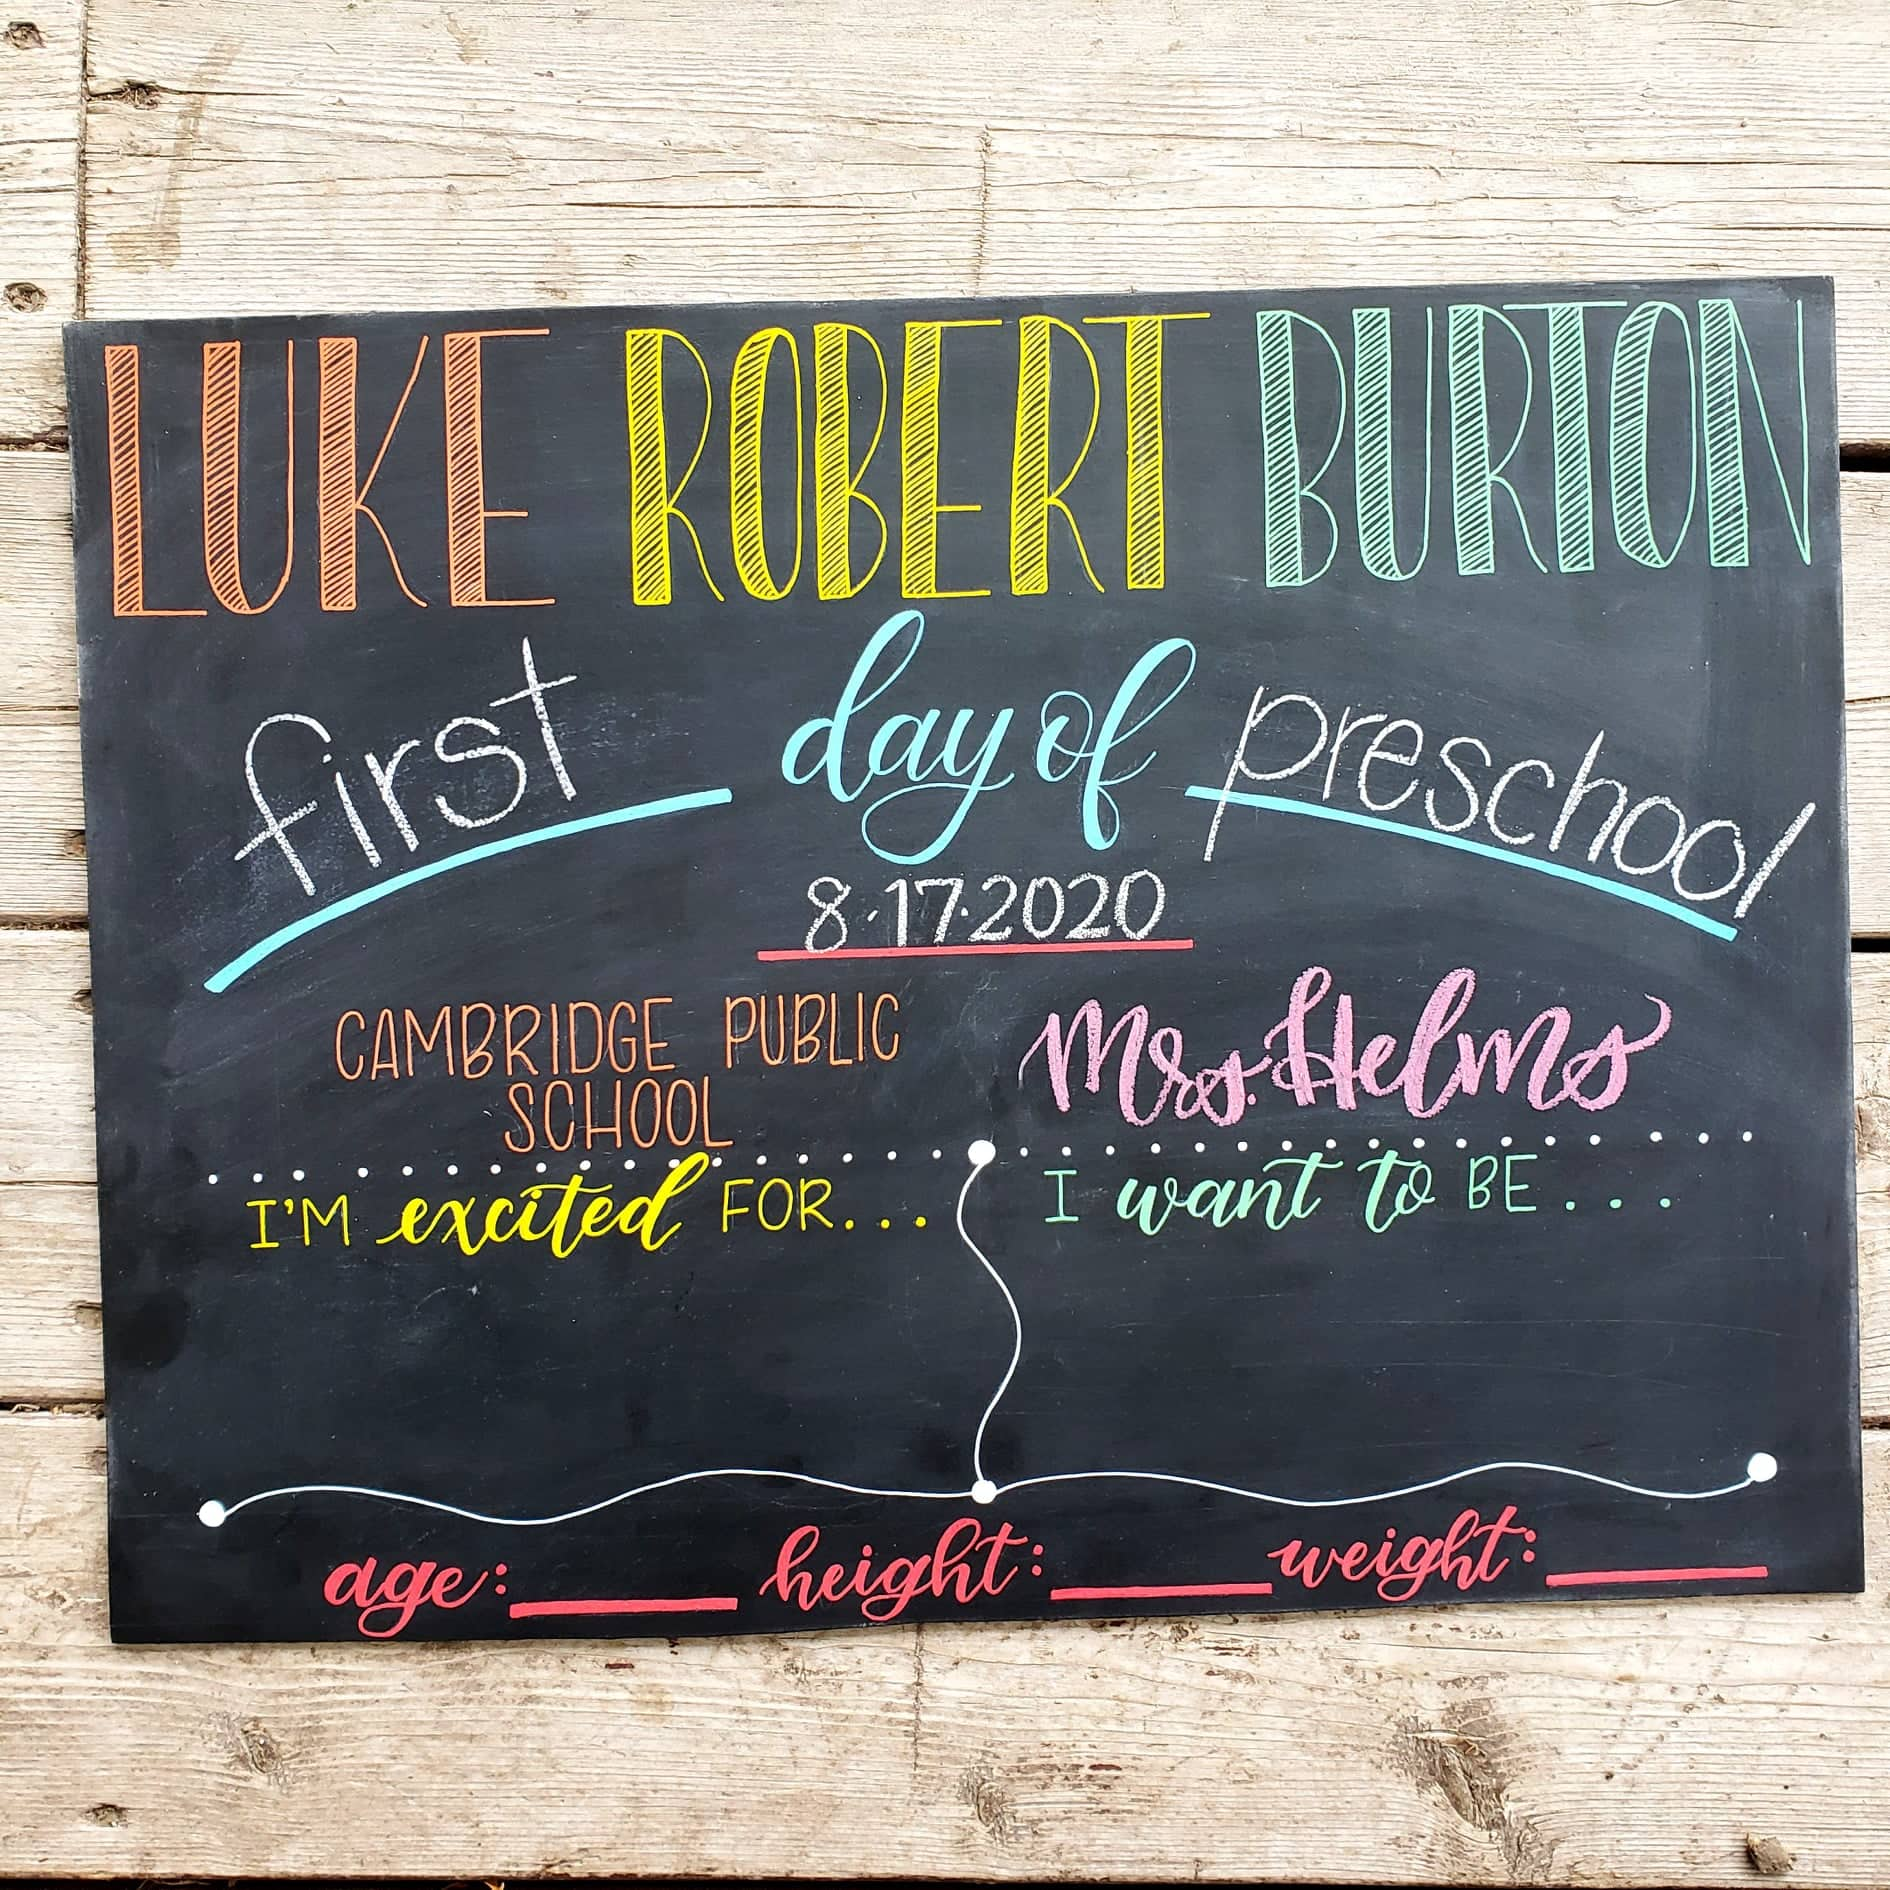 LUKE ROBERT BURTON
first day of preschool
8.17.2020
CAMBRIDGE PUBLIC
SCHOOL
Mrs. Helms
I'M excited FOR...
I want to BE...
age: height: weight: